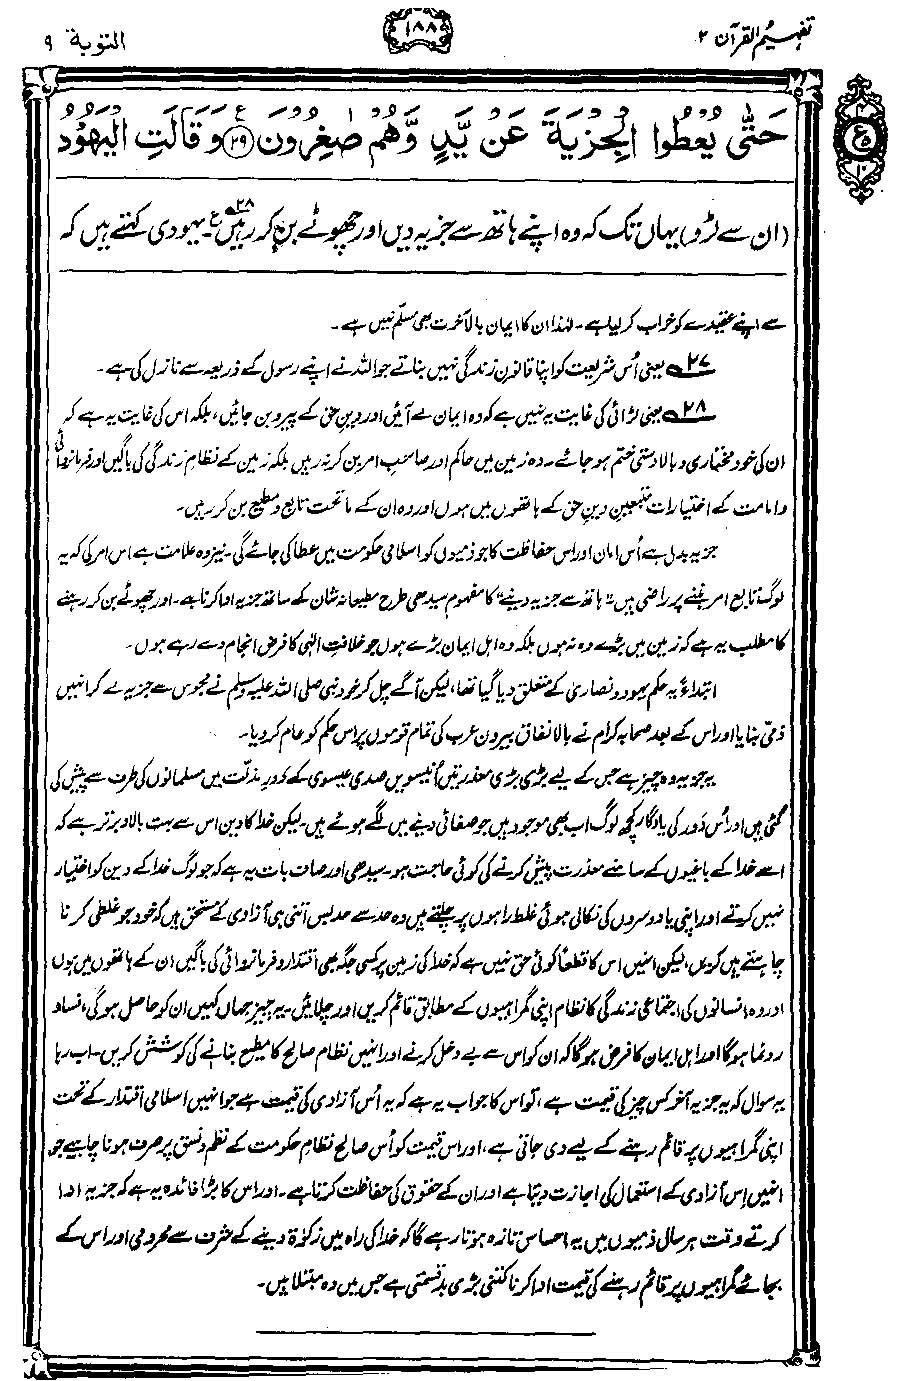 تفہیم القرآن ۲
۱۸۸
التوبۃ ۹
حَتّٰى يُعْطُوا الْجِزْيَةَ عَنْ يَّدٍ وَّهُمْ صٰغِرُوْنَ ﴿۲۹﴾ ع وَقَالَتِ الْيَهُوْدُ
ع
۵
۱۰
(ان سے لڑو) یہاں تک کہ وہ اپنے ہاتھ سے جزیہ دیں اور چھوٹے بن کر رہیں۔۲۸ ع یہودی کہتے ہیں کہ
سے اپنے عقیدے کو خراب کر لیا ہے۔ لہٰذا ان کا ایمان بالآخرت بھی مسلّم نہیں ہے۔
۲۷ یعنی اُس شریعت کو اپنا قانونِ زندگی نہیں بناتے جو اللہ نے اپنے رسول کے ذریعہ سے نازل کی ہے۔
۲۸ یعنی لڑائی کی غایت یہ نہیں ہے کہ وہ ایمان لے آئیں اور دینِ حق کے پیرو بن جائیں، بلکہ اس کی غایت یہ ہے کہ
ان کی خود مختاری و بالادستی ختم ہو جائے۔ وہ زمین میں حاکم اور صاحبِ امر بن کر نہ رہیں بلکہ زمین کے نظامِ زندگی کی باگیں اور فرمانروائی
و امامت کے اختیارات متبعینِ دینِ حق کے ہاتھوں میں ہوں اور وہ ان کے ماتحت تابع و مطیع بن کر رہیں۔
جزیہ بدل ہے اُس امان اور اس حفاظت کا جو ذمیوں کو اسلامی حکومت میں عطا کی جائے گی۔ نیز وہ علامت ہے اس امر کی کہ یہ
لوگ تابع امر بننے پر راضی ہیں۔ ”ہاتھ سے جزیہ دینے“ کا مفہوم سیدھی طرح مطیعانہ شان کے ساتھ جزیہ ادا کرنا ہے۔ اور چھوٹے بن کر رہنے
کا مطلب یہ ہے کہ زمین میں بڑے وہ نہ ہوں بلکہ وہ اہل ایمان بڑے ہوں جو خلافتِ الٰہی کا فرض انجام دے رہے ہوں۔
ابتداءً یہ حکم یہود و نصاریٰ کے متعلق دیا گیا تھا، لیکن آگے چل کر خود نبی صلی اللہ علیہ وسلم نے مجوس سے جزیہ لے کر انہیں
ذمّی بنایا اور اس کے بعد صحابہ کرام نے بالاتفاق بیرون عرب کی تمام قوموں پر اس حکم کو عام کر دیا۔
یہ جزیہ وہ چیز ہے جس کے لیے بڑی بڑی معذرتیں اُنیسویں صدی عیسوی کے دَورِ مذلّت میں مسلمانوں کی طرف سے پیش کی
گئی ہیں اور اُس دَور کی یادگار کچھ لوگ اب بھی موجود ہیں جو صفائی دینے میں لگے ہوئے ہیں۔ لیکن خدا کا دین اس سے بہت بالا و برتر ہے کہ
اسے خدا کے باغیوں کے سامنے معذرت پیش کرنے کی کوئی حاجت ہو۔ سیدھی اور صاف بات یہ ہے کہ جو لوگ خدا کے دین کو اختیار
نہیں کرتے اور اپنی یا دوسروں کی نکالی ہوئی غلط راہوں پر چلتے ہیں وہ حد سے حد بس اتنی ہی آزادی کے مستحق ہیں کہ خود جو غلطی کرنا
چاہتے ہیں کریں، لیکن انہیں اس کا قطعاً کوئی حق نہیں ہے کہ خدا کی زمین پر کسی جگہ بھی اقتدار و فرمانروائی کی باگیں ان کے ہاتھوں میں ہوں
اور وہ انسانوں کی اجتماعی زندگی کا نظام اپنی گمراہیوں کے مطابق قائم کریں اور چلائیں۔ یہ چیز جہاں کہیں ان کو حاصل ہوگی، فساد
رونما ہوگا اور اہل ایمان کا فرض ہوگا کہ ان کو اس سے بے دخل کرنے اور انہیں نظام صالح کا مطیع بنانے کی کوشش کریں۔ اب رہا
یہ سوال کہ یہ جزیہ آخر کس چیز کی قیمت ہے، تو اس کا جواب یہ ہے کہ یہ اُس آزادی کی قیمت ہے جو انہیں اسلامی اقتدار کے تحت
اپنی گمراہیوں پر قائم رہنے کے لیے دی جاتی ہے، اور اس قیمت کو اُس صالح نظامِ حکومت کے نظم و نسق پر صرف ہونا چاہیے جو
انہیں اِس آزادی کے استعمال کی اجازت دیتا ہے اور ان کے حقوق کی حفاظت کرتا ہے۔ اور اس کا بڑا فائدہ یہ ہے کہ جزیہ ادا
کرتے وقت ہر سال ذمیوں میں یہ احساس تازہ ہوتا رہے گا کہ خدا کی راہ میں زکوٰۃ دینے کے شرف سے محرومی اور اس کے
بجائے گمراہیوں پر قائم رہنے کی قیمت ادا کرنا کتنی بڑی بدقسمتی ہے جس میں وہ مبتلا ہیں۔